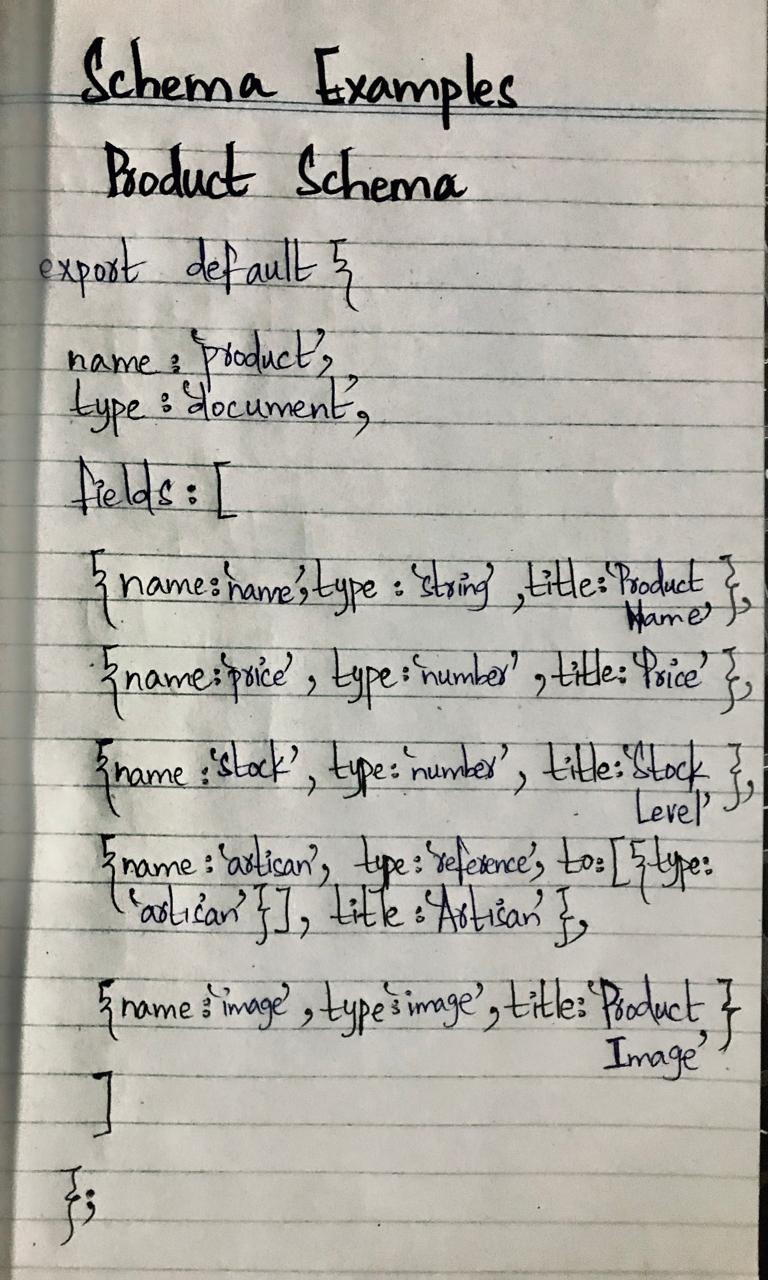 Schema Examples
Product Schema
export default {
name: 'product',
type: 'document',
fields: [
{name: 'name', type: 'string', title: 'Product
Name'},
{name: 'price', type: 'number', title: 'Price'},
{name: 'stock', type: 'number', title: 'Stock
Level'},
{name: 'artisan', type: 'reference', to: [{type:
'artisan'}], title: 'Artisan'},
{name: 'image', type: 'image', title: 'Product
Image'}
]
};